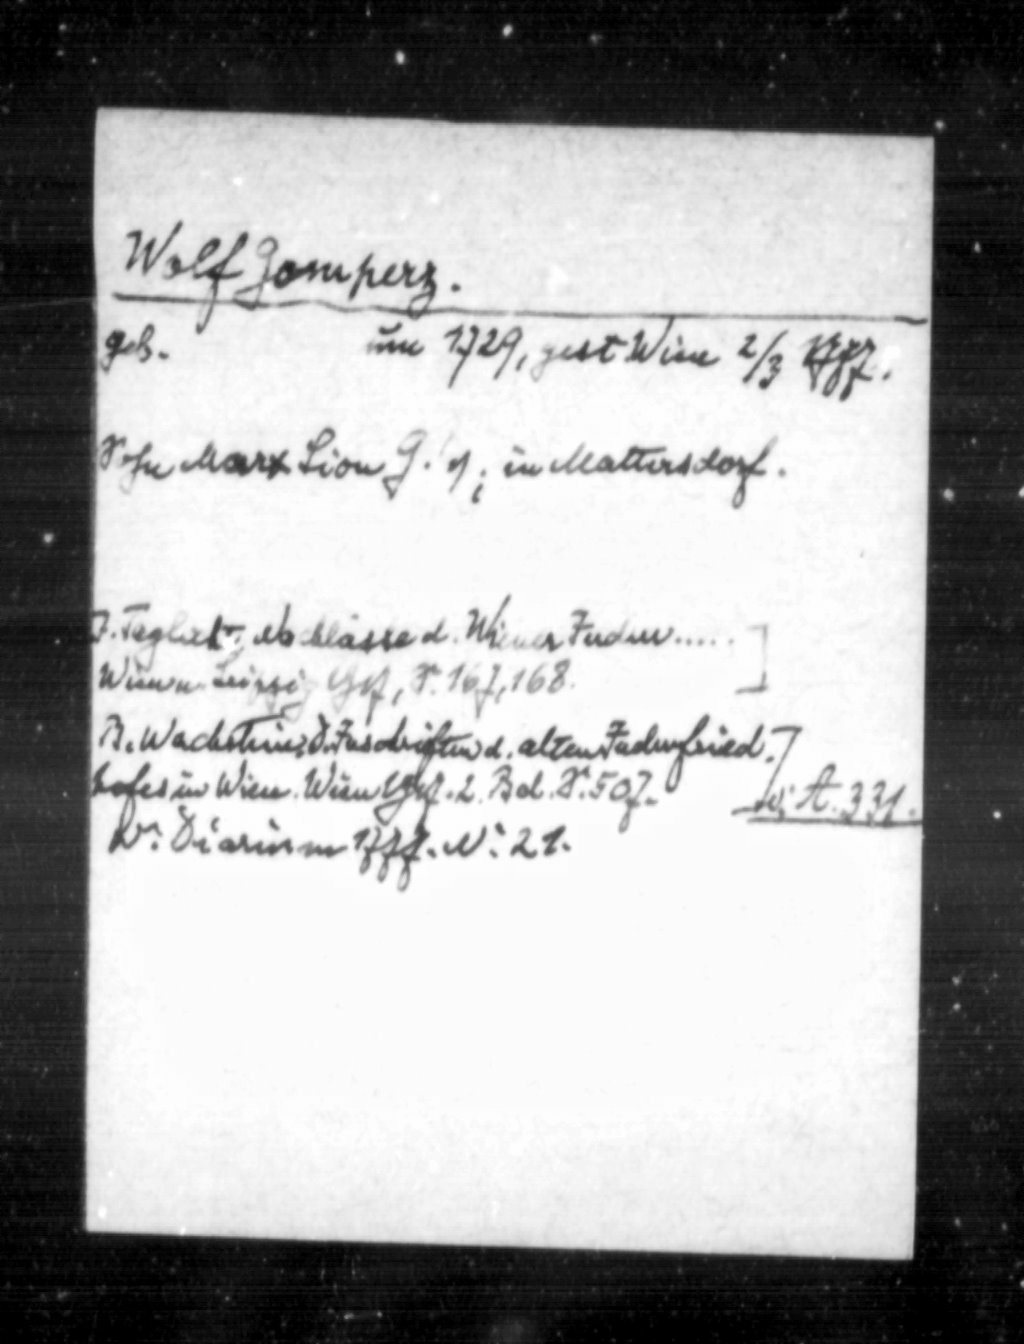 Wolf Gomperz.
geb. um 1729, gest Wien 2/3 1777.
Sohn Marx Lion G.'s, in Mattersdorf.
J. Taglicht, Nachlässe d. Wiener Juden.....
Wien u. Leipzig 1917, S. 167, 168.
B. Wachstein, D. Inschriften d. alten Judenfried-
hofes in Wien. Wien 1917. 2. Bd. S. 507.
W: Diarium 1777. N: 21.
A. 331.